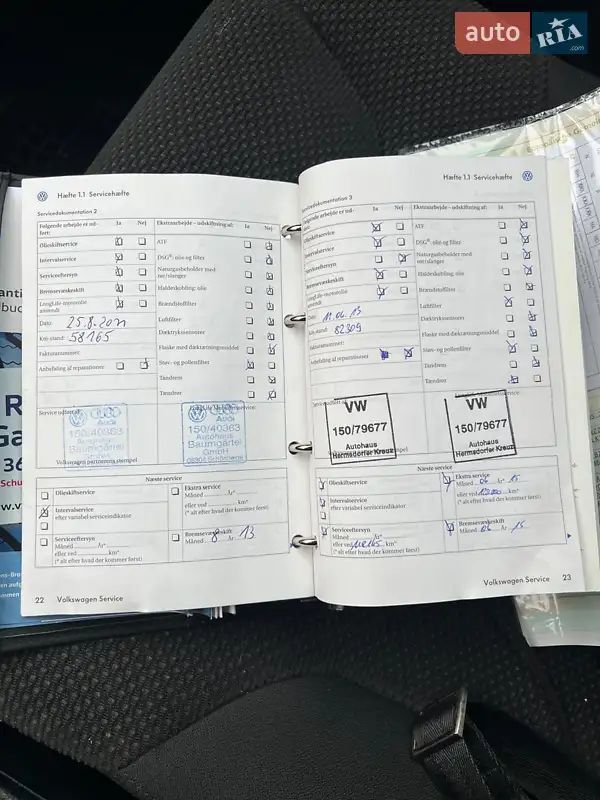 auto RIA .com
Hæfte 1.1 Servicehæfte
Servicedokumentation 2
Følgende arbejde er udført: Ja Nej Ekstraarbejde – udskiftning af: Ja Nej
Olieskiftservice ATF
Intervalservice DSG®, olie og filter
Serviceeftersyn Naturgasbeholder med
rør/slanger
Bremsevæskeskift Haldekskobling, olie
LongLife-motorolie
anvendt Brændstoffilter
Dato: 25.8.2011 Luftfilter
Km-stand: 58165 Dæktryksensorer
Fakturanummer: Flaske med dæktætningsmiddel
Anbefaling af reparationer Støv- og pollenfilter
Tændrem
Tændrør
Service udført af:
Audi
150/40363
Autohaus
Baumgärtel
GmbH
Audi
150/40363
Autohaus
Baumgärtel
GmbH
Volkswagen partnerens stempel
Næste service
Olieskiftservice Ekstra service
Måned år*
Intervalservice
efter variabel serviceindikator
eller ved km*
(* alt efter hvad der kommer først)
Serviceeftersyn
Måned år*
eller ved km*
(* alt efter hvad der kommer først)
Bremsevæskeskift
Måned 8 år 13
22 Volkswagen Service
Hæfte 1.1 Servicehæfte
Servicedokumentation 3
Følgende arbejde er udført: Ja Nej Ekstraarbejde – udskiftning af: Ja Nej
Olieskiftservice ATF
Intervalservice DSG®, olie og filter
Serviceeftersyn Naturgasbeholder med
rør/slanger
Bremsevæskeskift Haldekskobling, olie
LongLife-motorolie
anvendt Brændstoffilter
Dato: Luftfilter
Km-stand: 82309 Dæktryksensorer
Fakturanummer: Flaske med dæktætningsmiddel
Anbefaling af reparationer Støv- og pollenfilter
Tændrem
Tændrør
VW
150/79677
Autohaus
Hermsdorfer Kreuz
VW
150/79677
Autohaus
Hermsdorfer Kreuz
Næste service
Olieskiftservice Ekstra service
Måned 06 år* 15
Intervalservice
efter variabel serviceindikator
eller ved km*
(* alt efter hvad der kommer først)
Serviceeftersyn
Måned år*
eller ved km*
(* alt efter hvad der kommer først)
Bremsevæskeskift
Måned 06 år 15
Volkswagen Service 23